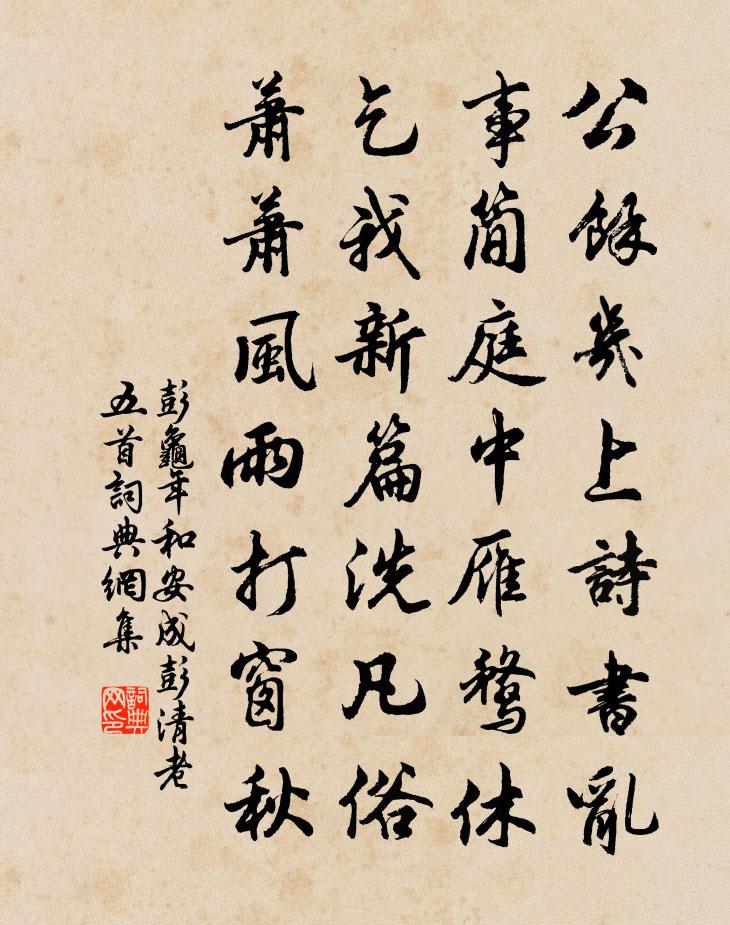 公餘幾上詩書亂
事簡庭中雁鶩休
乞我新篇洗凡俗
蕭蕭風雨打窗秋
彭龜年和安成彭清老
五首詞典網集
詞典
网印